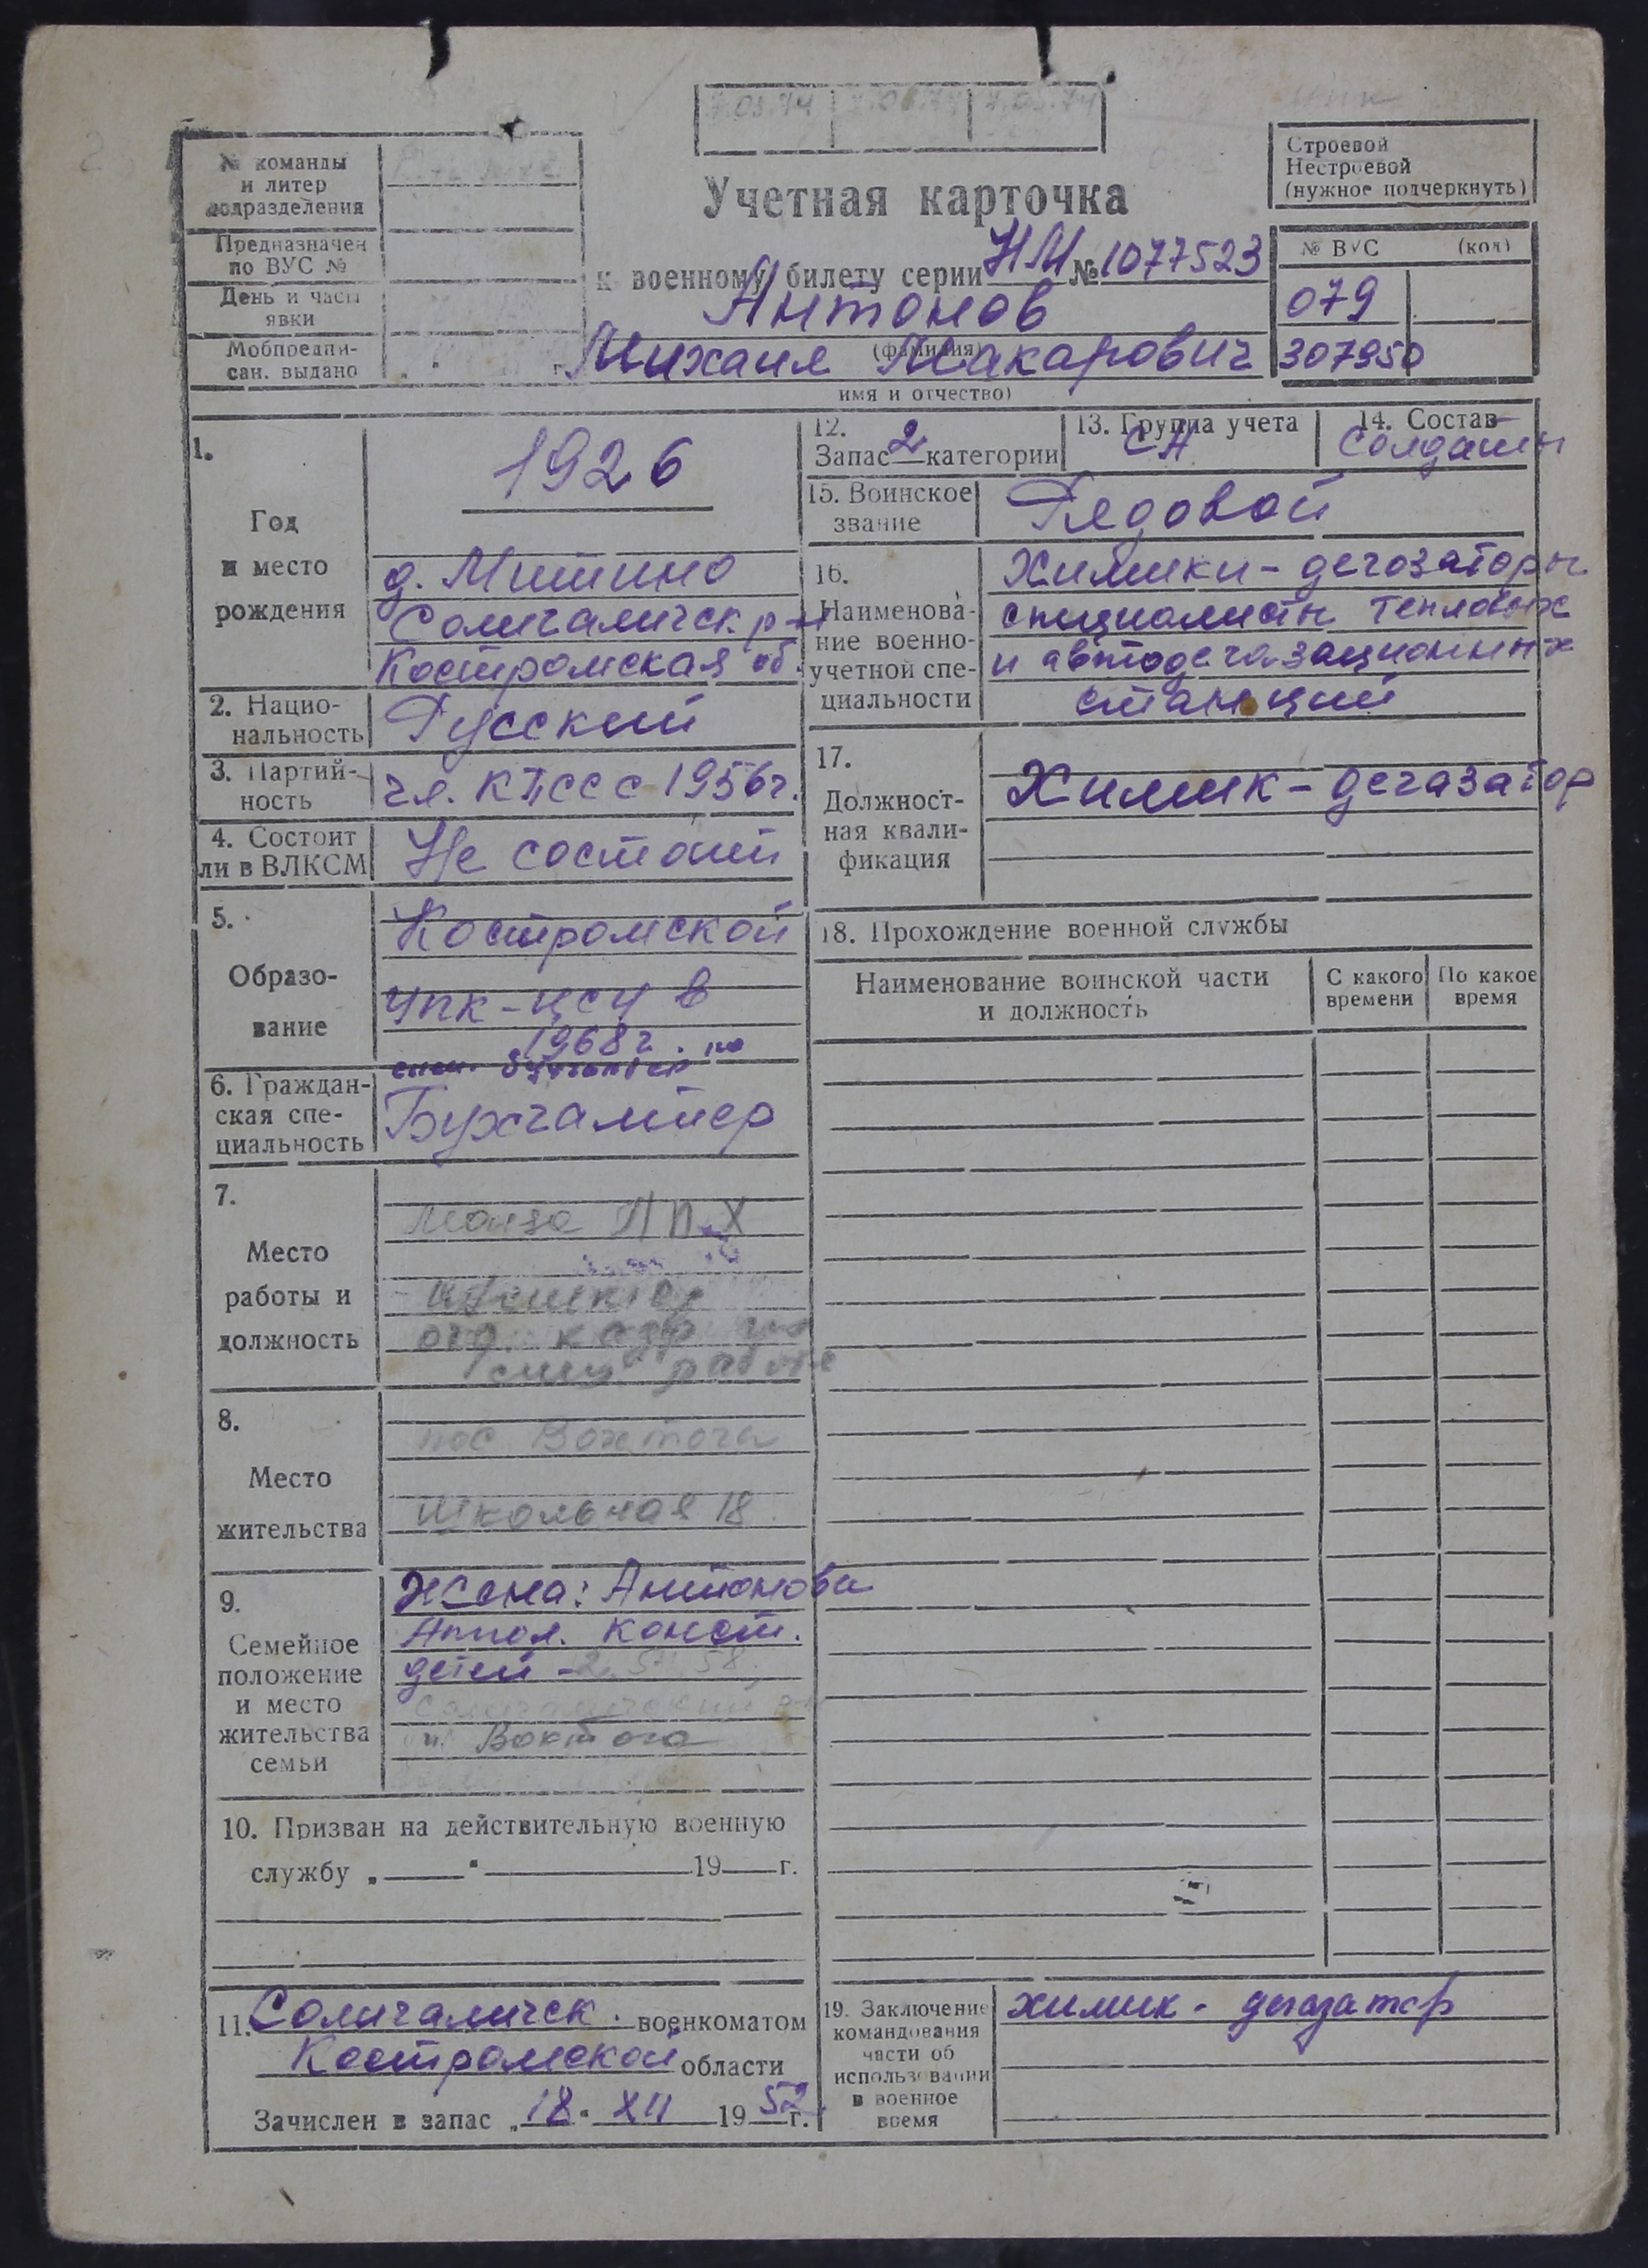 № команды
и литер
подразделения
Предназначен
по ВУС №
День и часы
явки
Мобпредпи-
сан. выдано „ " г.
7.03.74
Учетная карточка
к военному билету серии НМ № 1077523
Антонов
(фамилия)
Михаил Макарович
имя и отчество)
Строевой
Нестроевой
(нужное подчеркнуть)
№ ВУС (код)
079
307950
1.
Год
и место
рождения
1926
д. Митино
Солигаличск. р-н
Костромская об.
2. Нацио-
нальность
Русский
3. Партий-
ность
чл. КПСС с 1956г.
4. Состоит
ли в ВЛКСМ
Не состоит
5.
Образо-
вание
Костромской
УПК-ЦСУ в
1968г. по
спец. бухгалтер
6. Граждан-
ская спе-
циальность
Бухгалтер
7.
Место
работы и
должность
Монза ЛПХ
работе
8.
Место
жительства
пос Вохтога
Школьная 18
9.
Семейное
положение
и место
жительства
семьи
Жена: Антонова
Аппол. Конст.
детей - 2.
Солигаличский р-н
п. Вохтога
10. Призван на действительную военную
службу „ " 19 г.
11. Солигаличск. военкоматом
Костромской области
Зачислен в запас „18" XII 1952 г.
12.
Запас 2 категории
13. Группа учета
СА
14. Состав
Солдаты
15. Воинское
звание
Рядовой
16.
Наименова-
ние военно-
учетной спе-
циальности
Химики-дегозаторы
специалисты тепловых
и автодегазационных
станций
17.
Должност-
ная квали-
фикация
Химик-дегазатор
18. Прохождение военной службы
Наименование воинской части
и должность
С какого
времени
По какое
время
19. Заключение
командования
части об
использовании
в военное
время
химик-дегазатор